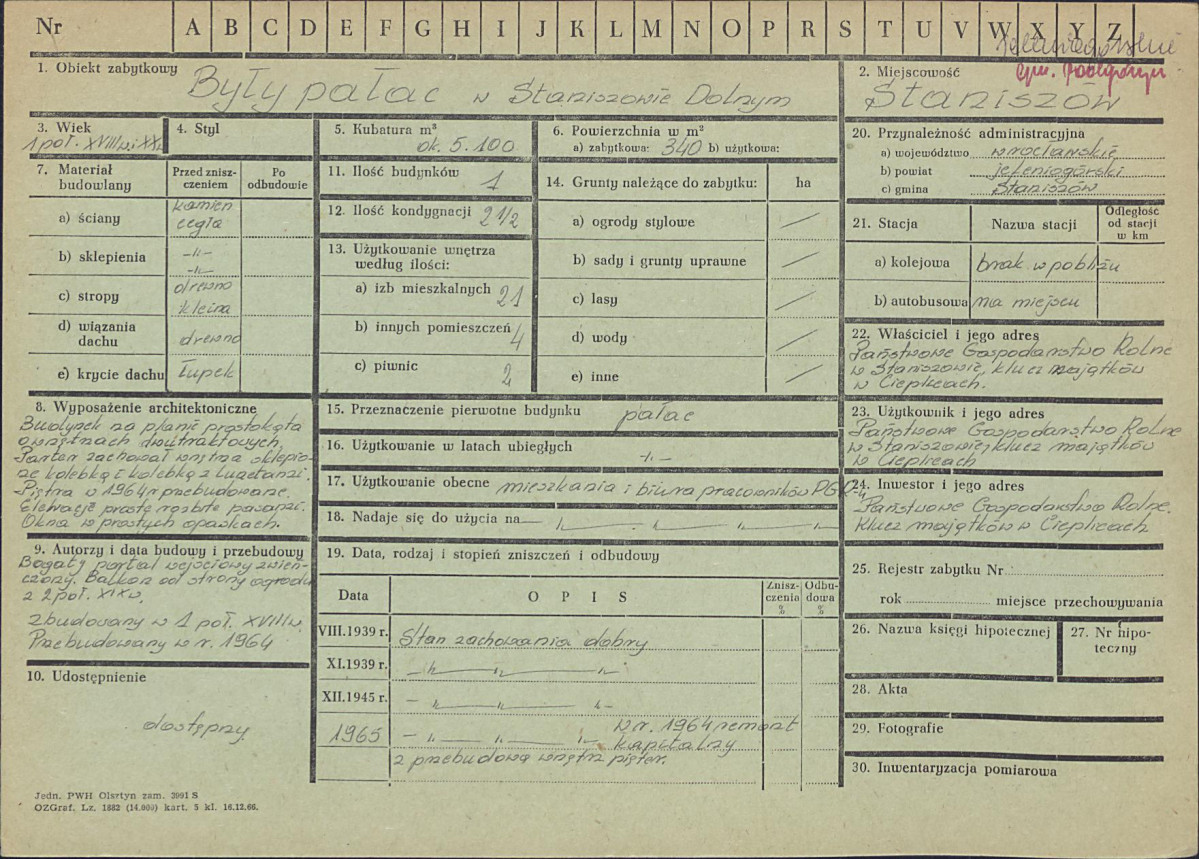 Nr A B C D E F G H I J K L M N O P R S T U V W X Y Z
jeleniogórskie
gm. Podgórzyn
1. Obiekt zabytkowy
Były pałac w Staniszowie Dolnym
2. Miejscowość
Staniszów
3. Wiek
1 poł. XVIII w. i XX w.
4. Styl
5. Kubatura m³
ok. 5.100
6. Powierzchnia w m²
a) zabytkowa: 340 b) użytkowa:
7. Materiał budowlany
Przed zniszczeniem
Po odbudowie
a) ściany
kamień
cegła
b) sklepienia
-"-
-"-
c) stropy
drewno
kleina
d) wiązania dachu
drewno
e) krycie dachu
łupek
8. Wyposażenie architektoniczne
Budynek na planie prostokąta
o wnętrzach dwutraktowych.
Parter zachował wnętrza sklepio-
ne kolebką i kolebką z lunetami.
Piętra w 1964 r przebudowane.
Elewacje proste rozbite pasami.
Okna w prostych opaskach.
9. Autorzy i data budowy i przebudowy
Bogaty portal wejściowy zwień-
czony. Balkon od strony ogrodu
z 2 poł. XIX w.
zbudowany w 1 poł. XVIII w.
Przebudowany w r. 1964
10. Udostępnienie
dostępny
11. Ilość budynków 1
12. Ilość kondygnacji 2 1/2
13. Użytkowanie wnętrza
według ilości:
a) izb mieszkalnych 21
b) innych pomieszczeń 4
c) piwnic 2
14. Grunty należące do zabytku: ha
a) ogrody stylowe
b) sady i grunty uprawne
c) lasy
d) wody
e) inne
15. Przeznaczenie pierwotne budynku pałac
16. Użytkowanie w latach ubiegłych -"-
17. Użytkowanie obecne mieszkania i biura pracowników PGR-u
18. Nadaje się do użycia na — " — " — " — "
19. Data, rodzaj i stopień zniszczeń i odbudowy
Data
O P I S
Zniszczenia %
Odbudowa %
VIII.1939 r. Stan zachowania dobry
XI.1939 r. — " — " — " —
XII.1945 r. — " — " — " —
1965 — " — " — " — w r. 1964 remont
kapitalny
z przebudową wnętrz pięter.
20. Przynależność administracyjna
a) województwo wrocławskie
b) powiat jeleniogórski
c) gmina Staniszów
21. Stacja
Nazwa stacji
Odległość od stacji w km
a) kolejowa brak w pobliżu
b) autobusowa na miejscu
22. Właściciel i jego adres
Państwowe Gospodarstwo Rolne
w Staniszowie, klucz majątków
w Cieplicach.
23. Użytkownik i jego adres
Państwowe Gospodarstwo Rolne
w Staniszowie, klucz majątków
w Cieplicach
24. Inwestor i jego adres
Państwowe Gospodarstwo Rolne.
Klucz majątków w Cieplicach
25. Rejestr zabytku Nr
rok miejsce przechowywania
26. Nazwa księgi hipotecznej
27. Nr hipo-
teczny
28. Akta
29. Fotografie
30. Inwentaryzacja pomiarowa
Jedn. PWH Olsztyn zam. 3991 S
OZGraf. Lz. 1882 (14.000) kart. 5 kl. 16.12.66.